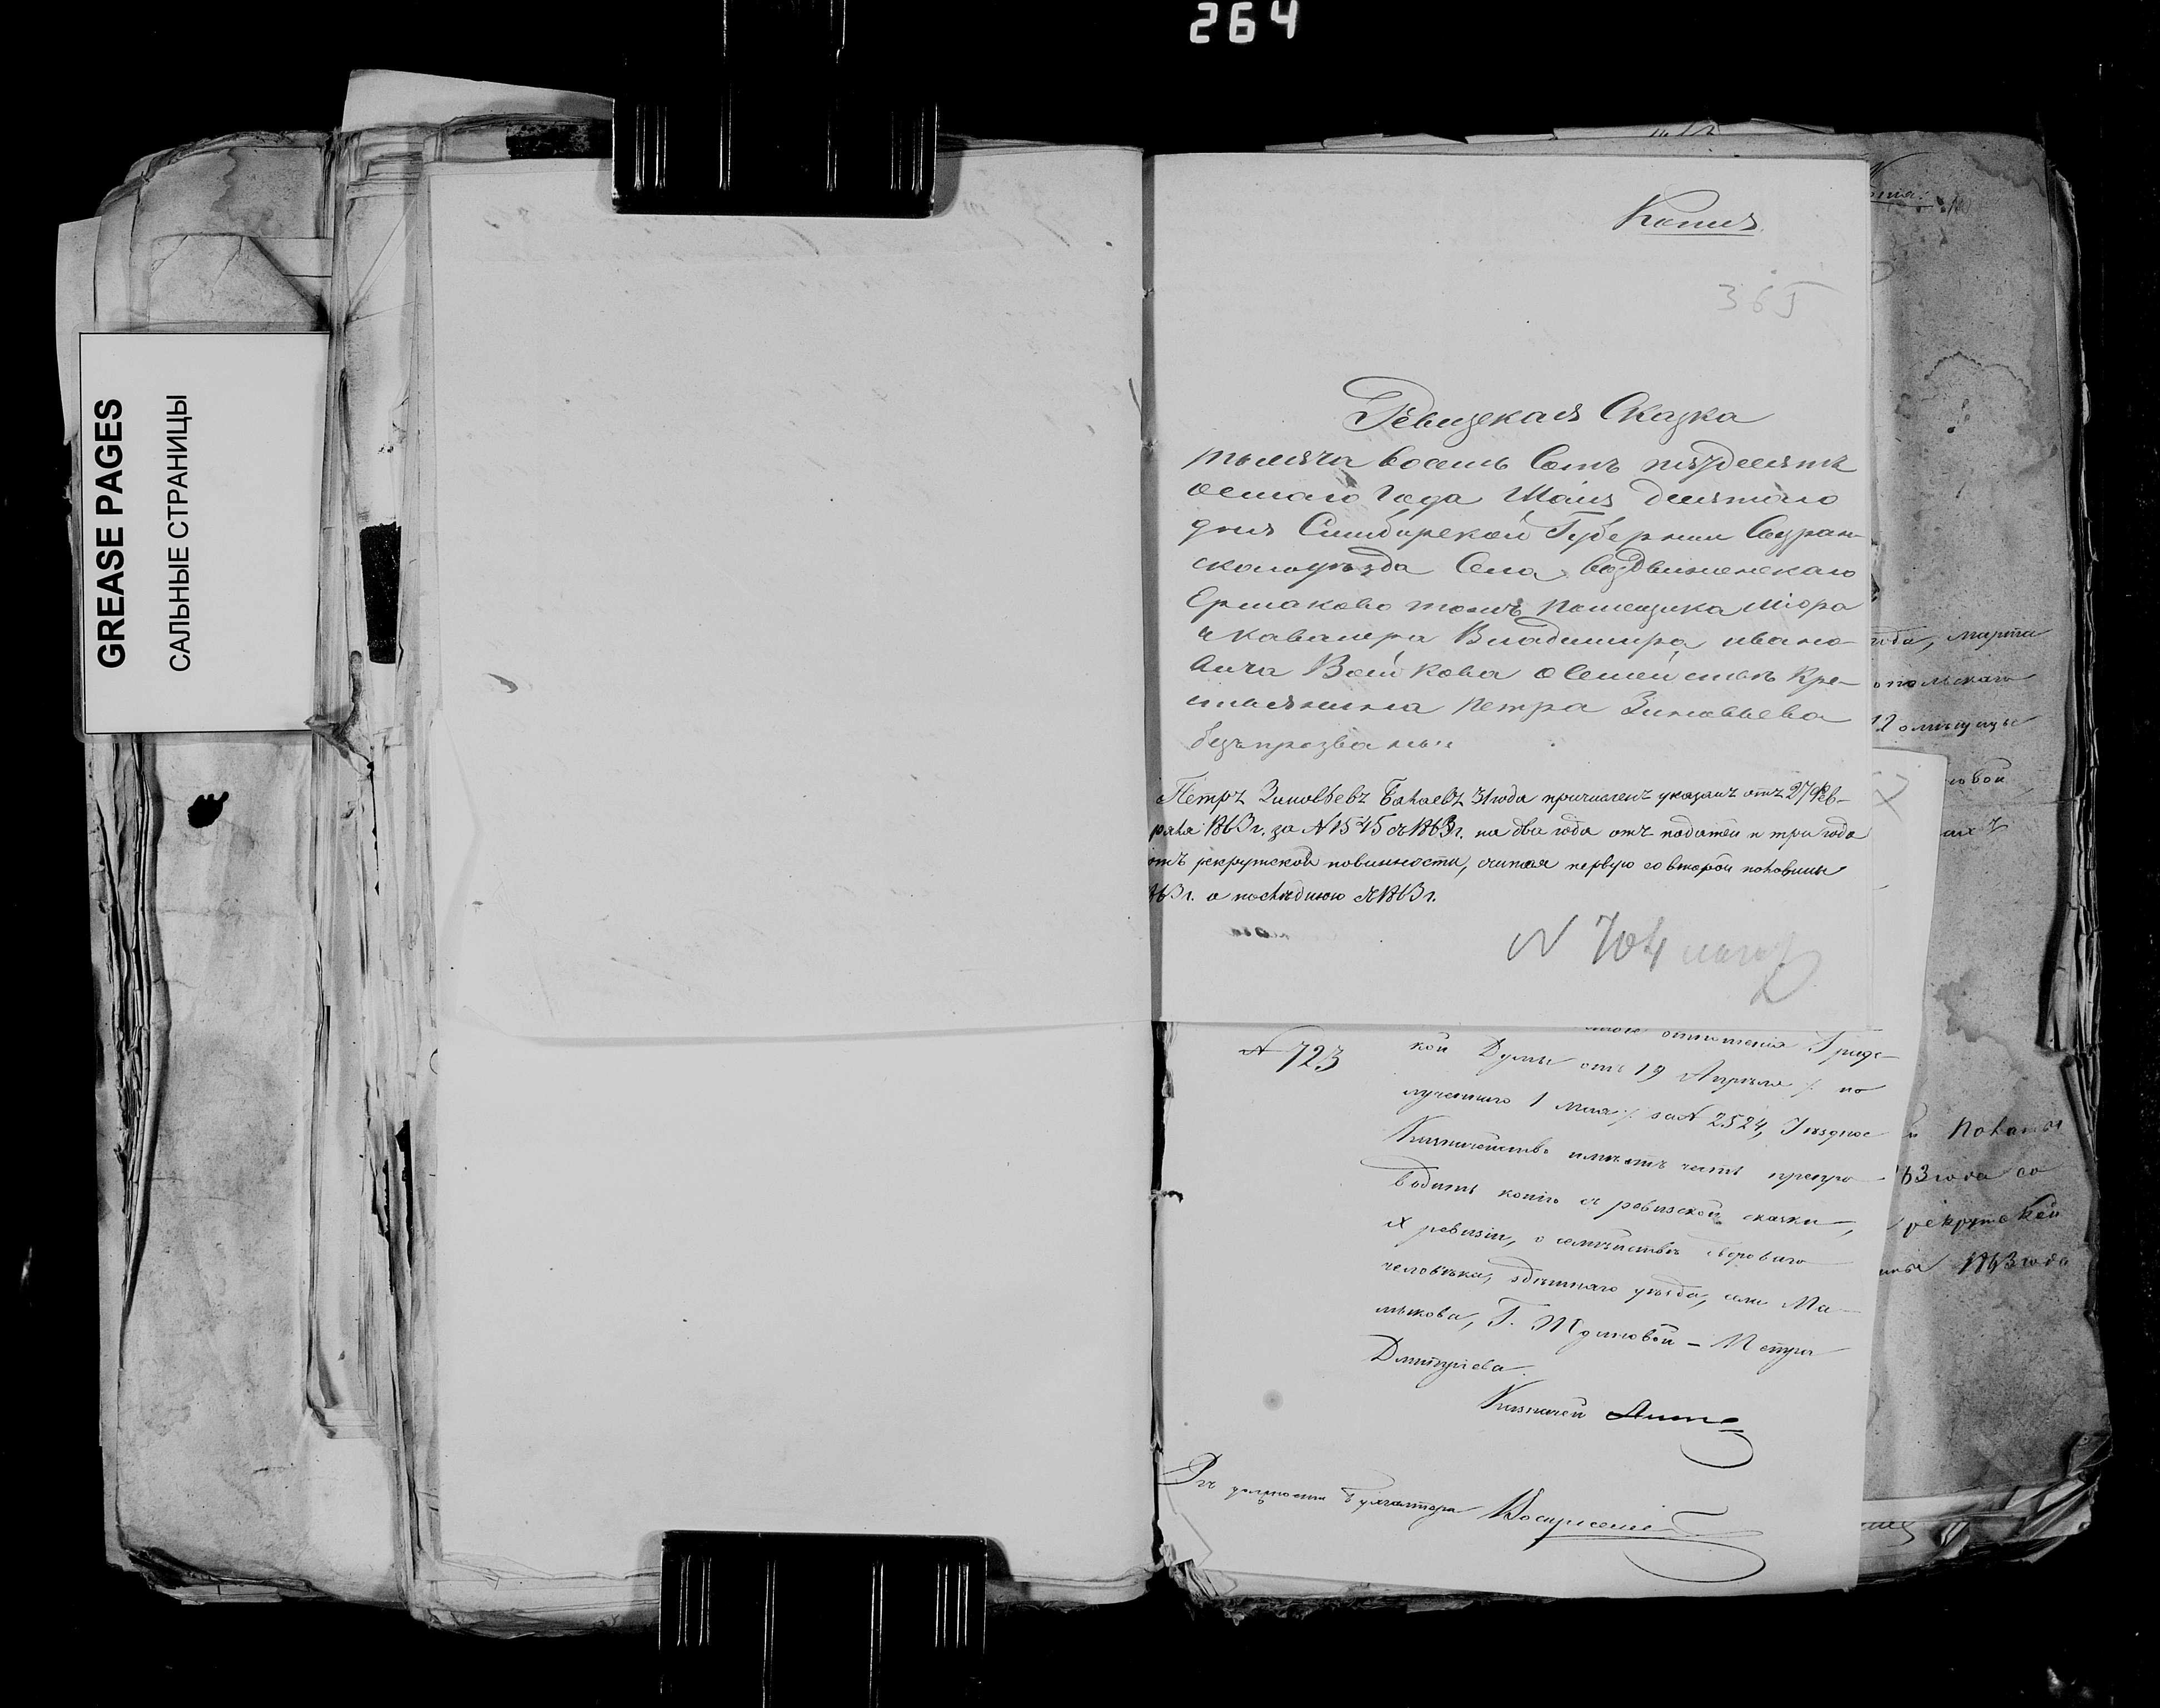 264
GREASE PAGES
САЛЬНЫЕ СТРАНИЦЫ
Копия
365
Ревизская Сказка
тысяча восемь Сотъ пятдесятъ
осмаго Года Маія десятаго
дня Симбирской Губерніи Сызран-
скагоуѣзда Села Воздвиженскаго
Ермаково тожъ Помещика Маіора
и кавалера Владимира ивано-
вича Войкова о Семействѣ Кре-
стьянина Петра Зиновьева
безъпрозванія
Петръ Зиновьевъ Бакаевъ 31 года причисленъ указомъ отъ 27 Фев-
раля 1863 г. за N 1545 съ 1863 г. на два года отъ податей и три года
отъ рекрутской повинности, считая первую со второй половины
1863 г. а послѣднюю съ 1863 г.
N 704
N 723
отношенія Град-
кой Думы отъ 19 Апрѣля /. по
лученнаго 1 мая ./. за N 2524, Уѣздное
Казначейство имѣетъ честь препро
водить копію съ ревизской сказки,
X ревизіи, о семействѣ двороваго
человѣка, здѣшняго уѣзда, села Ма-
мыкова, Г. Ждановой - Петра
Дмитріева.
Казначей
Въ должности Бухгалтера Воскресенскій
года, марта
рекрутской
1863 года
63 года со